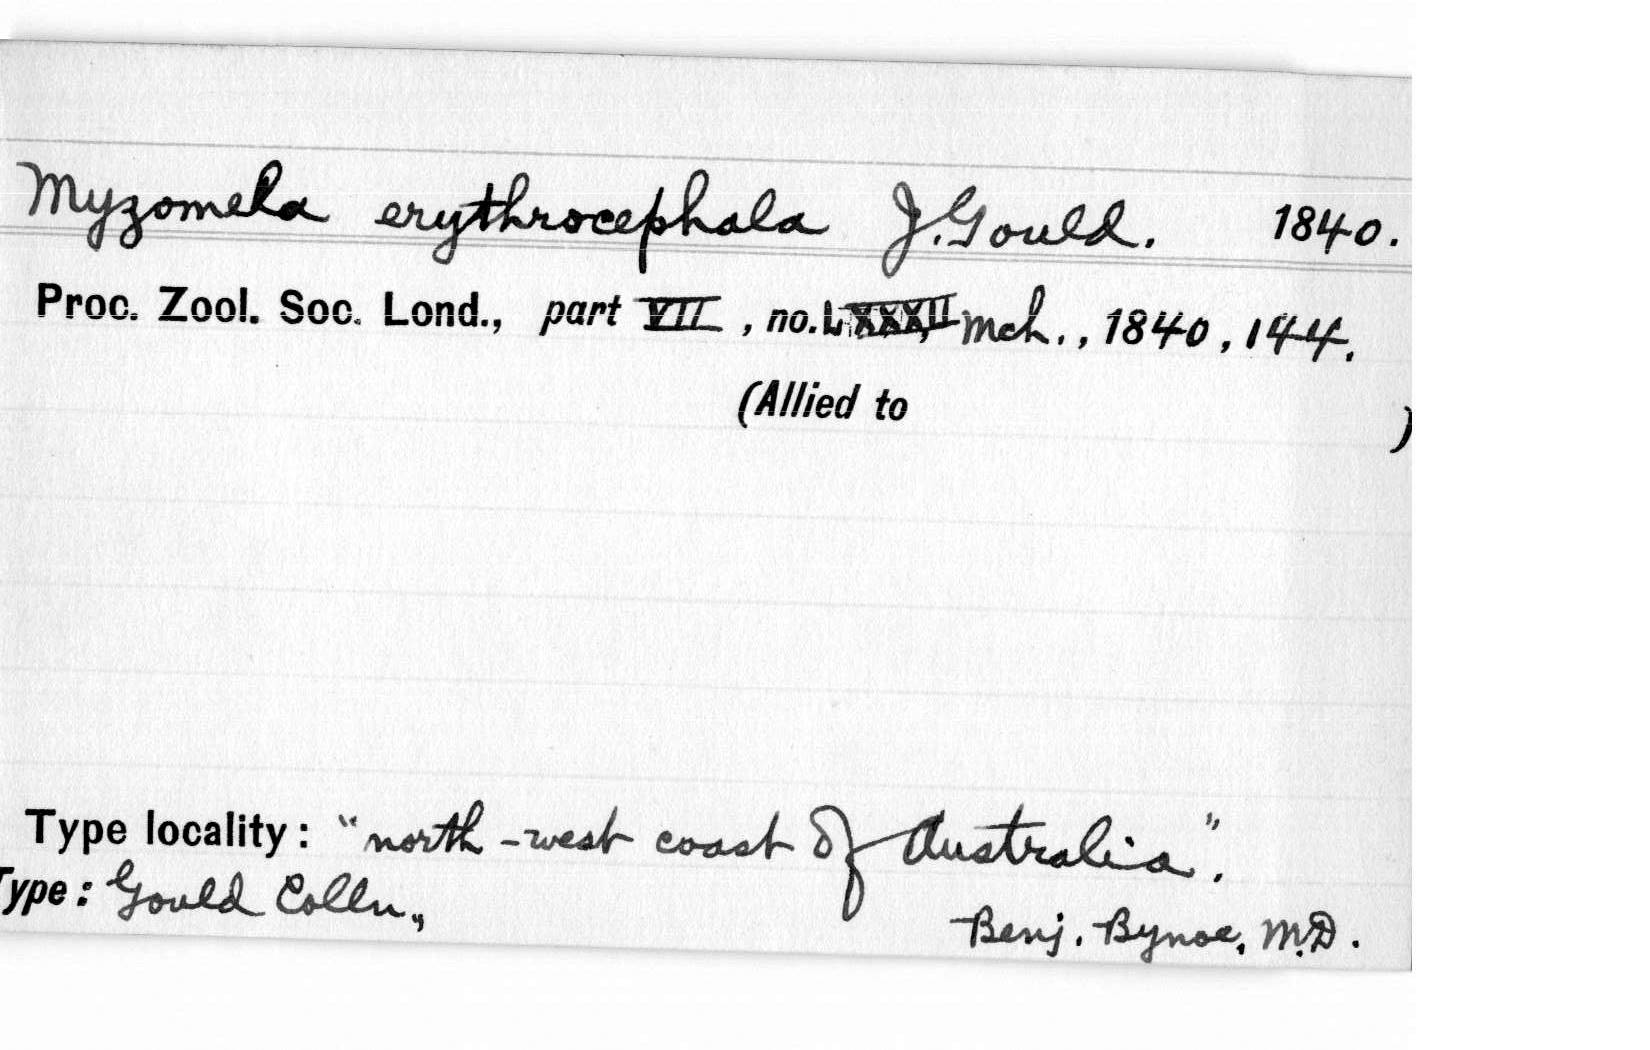 Myzomela erythrocephala J. Gould. 1840.
Proc. Zool. Soc. Lond., part VII, no. LXXXII Mch., 1840, 144.
(Allied to )
Type locality: "north-west coast of Australia".
Type: Gould Colln.,
Benj. Bynoe, M.D.